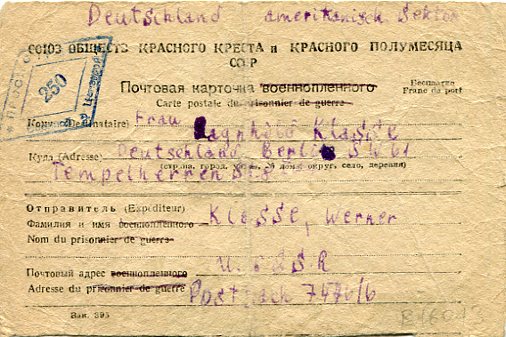 Deutschland amerikanisch Sektor
СОЮЗ ОБЩЕСТВ КРАСНОГО КРЕСТА и КРАСНОГО ПОЛУМЕСЯЦА
СССР
250
Почтовая карточка военнопленного
Бесплатно
Franc de port
Carte postale du prisonnier de guerre
Кому (Destinataire) Frau
Ragnhild Klasse
Куда (Adresse) Deutschland Berlin SW61
(страна, город, улица, № дома, округ, село, деревня)
Tempelherrenstr
Отправитель (Expéditeur)
Фамилия и имя военнопленного
Klasse, Werner
Nom du prisonnier de guerre
Почтовый адрес военнопленного
U.d.S.S.R
Adresse du prisonnier de guerre
Postfach
Зак. 395